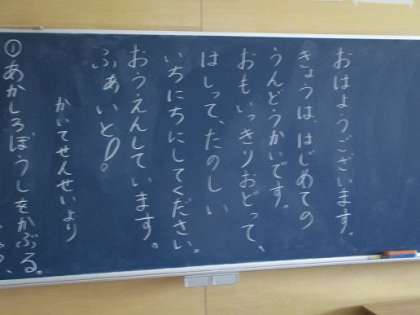 おはようございます。
きょうは、はじめての
うんどうかいです。
おもいっきりおどって、
はしって、たのしい
いちにちにしてください。
おうえんしています。
ふぁいと!。
かいてせんせいより
①あかしろぼうしをかぶる。